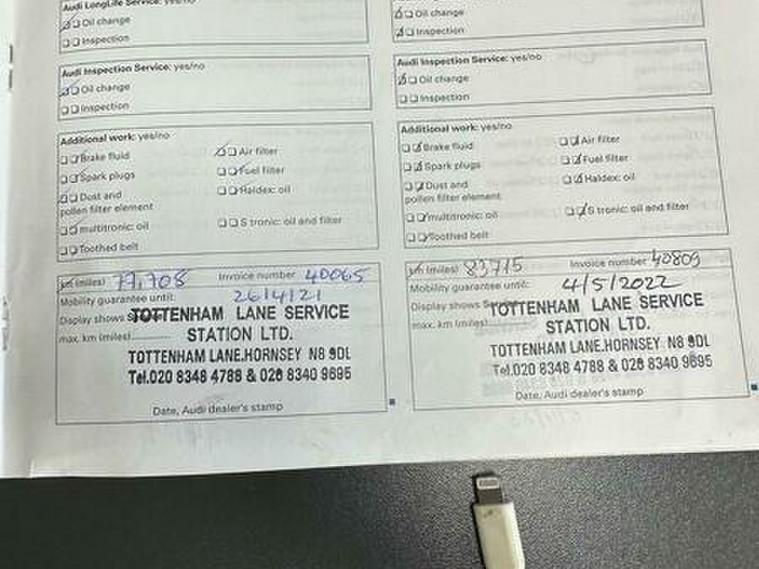 Audi LongLife Service: yes/no
Oil change
Inspection
Audi Inspection Service: yes/no
Oil change
Inspection
Additional work: yes/no
Brake fluid
Air filter
Spark plugs
Fuel filter
Dust and
pollen filter element
Haldex: oil
multitronic: oil
S tronic: oil and filter
Toothed belt
km (miles) 77,708 Invoice number 40065
Mobility guarantee until: 26/4/21
Display shows
TOTTENHAM LANE SERVICE
max. km (miles)
STATION LTD.
TOTTENHAM LANE.HORNSEY N8 9DL
Tel.020 8348 4788 & 020 8340 9695
Date, Audi dealer's stamp
Oil change
Inspection
Audi Inspection Service: yes/no
Oil change
Inspection
Additional work: yes/no
Brake fluid
Air filter
Spark plugs
Fuel filter
Dust and
pollen filter element
Haldex: oil
multitronic: oil
S tronic: oil and filter
Toothed belt
km (miles) 83715 Invoice number 40809
Mobility guarantee until: 4/5/2022
Display shows
TOTTENHAM LANE SERVICE
max. km (miles)
STATION LTD.
TOTTENHAM LANE.HORNSEY N8 9DL
Tel.020 8348 4788 & 020 8340 9695
Date, Audi dealer's stamp